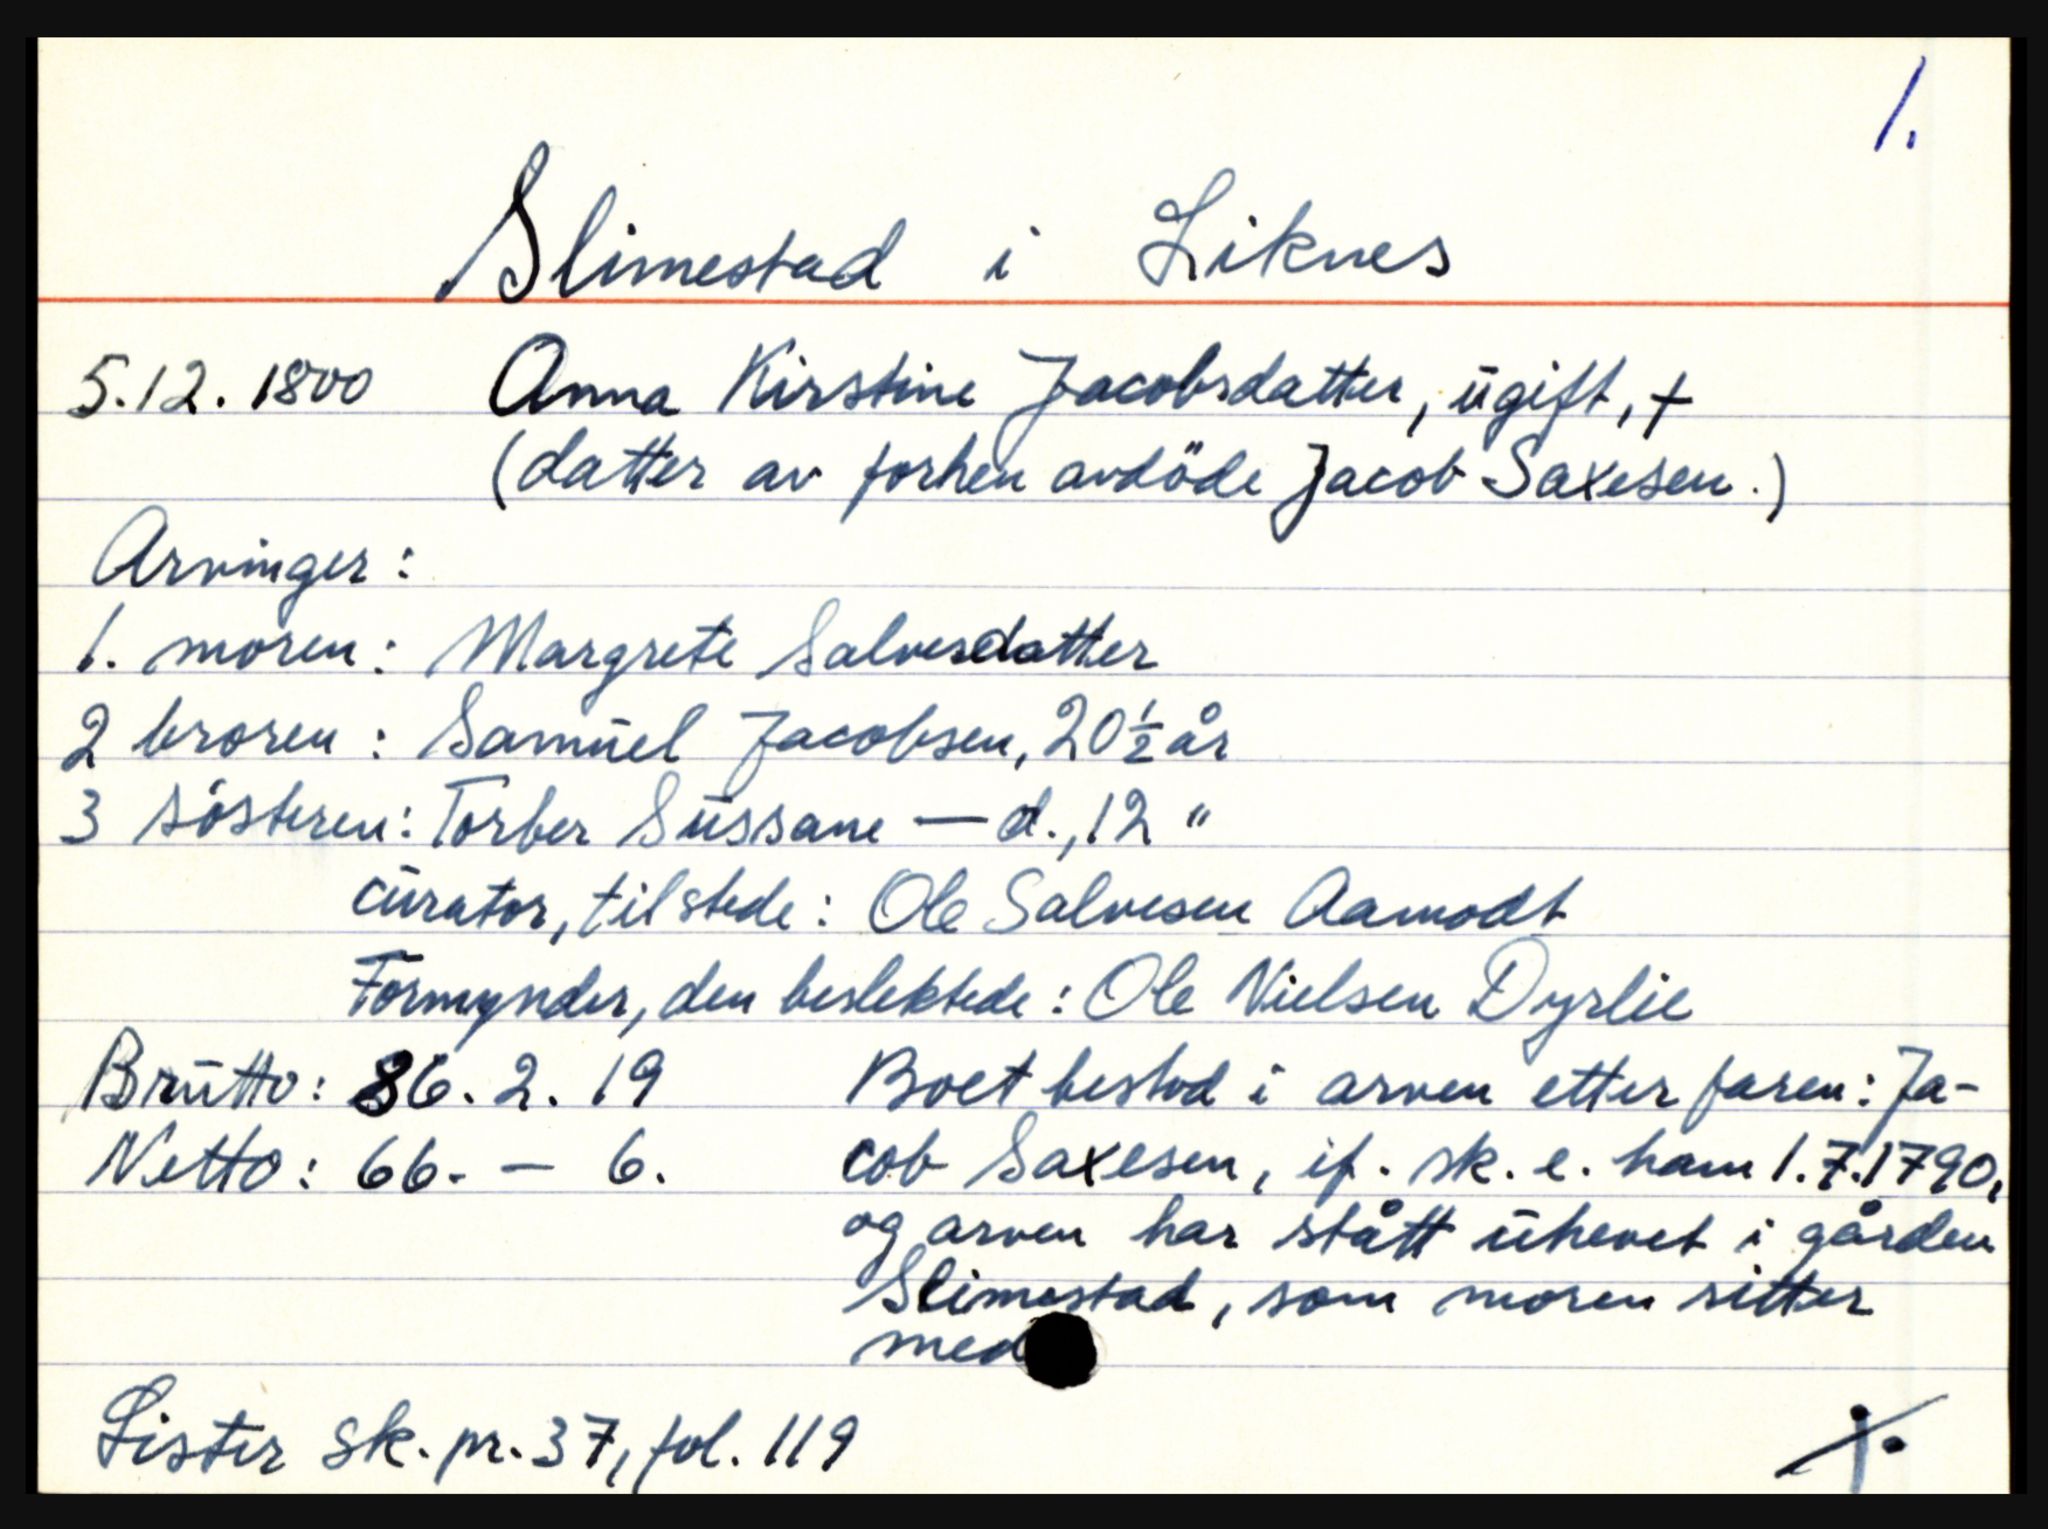 1.
Slimestad i Liknes
5.12.1800 Anna Kirstine Jacobsdatter, ugift, †
(datter av forhen avdöde Jacob Saxesen.)
Arvinger:
1. moren: Margrete Salvesdatter
2 broren: Samuel Jacobsen, 20 1/2 år
3 sösteren: Torber Sussane — d., 12 "
curator, tilstede: Ole Salvesen Aamodt
Formynder, den beslektede: Ole Nielsen Dyrlie
Brutto: 86. 2. 19 Boet bestod i arven etter faren: Ja-
Netto: 66. – 6. cob Saxesen, if. sk. e. ham 1.7.1790,
og arven har stått uhevet i gården
Slimestad, som moren sitter
med
Lister sk. pr. 37, fol. 119